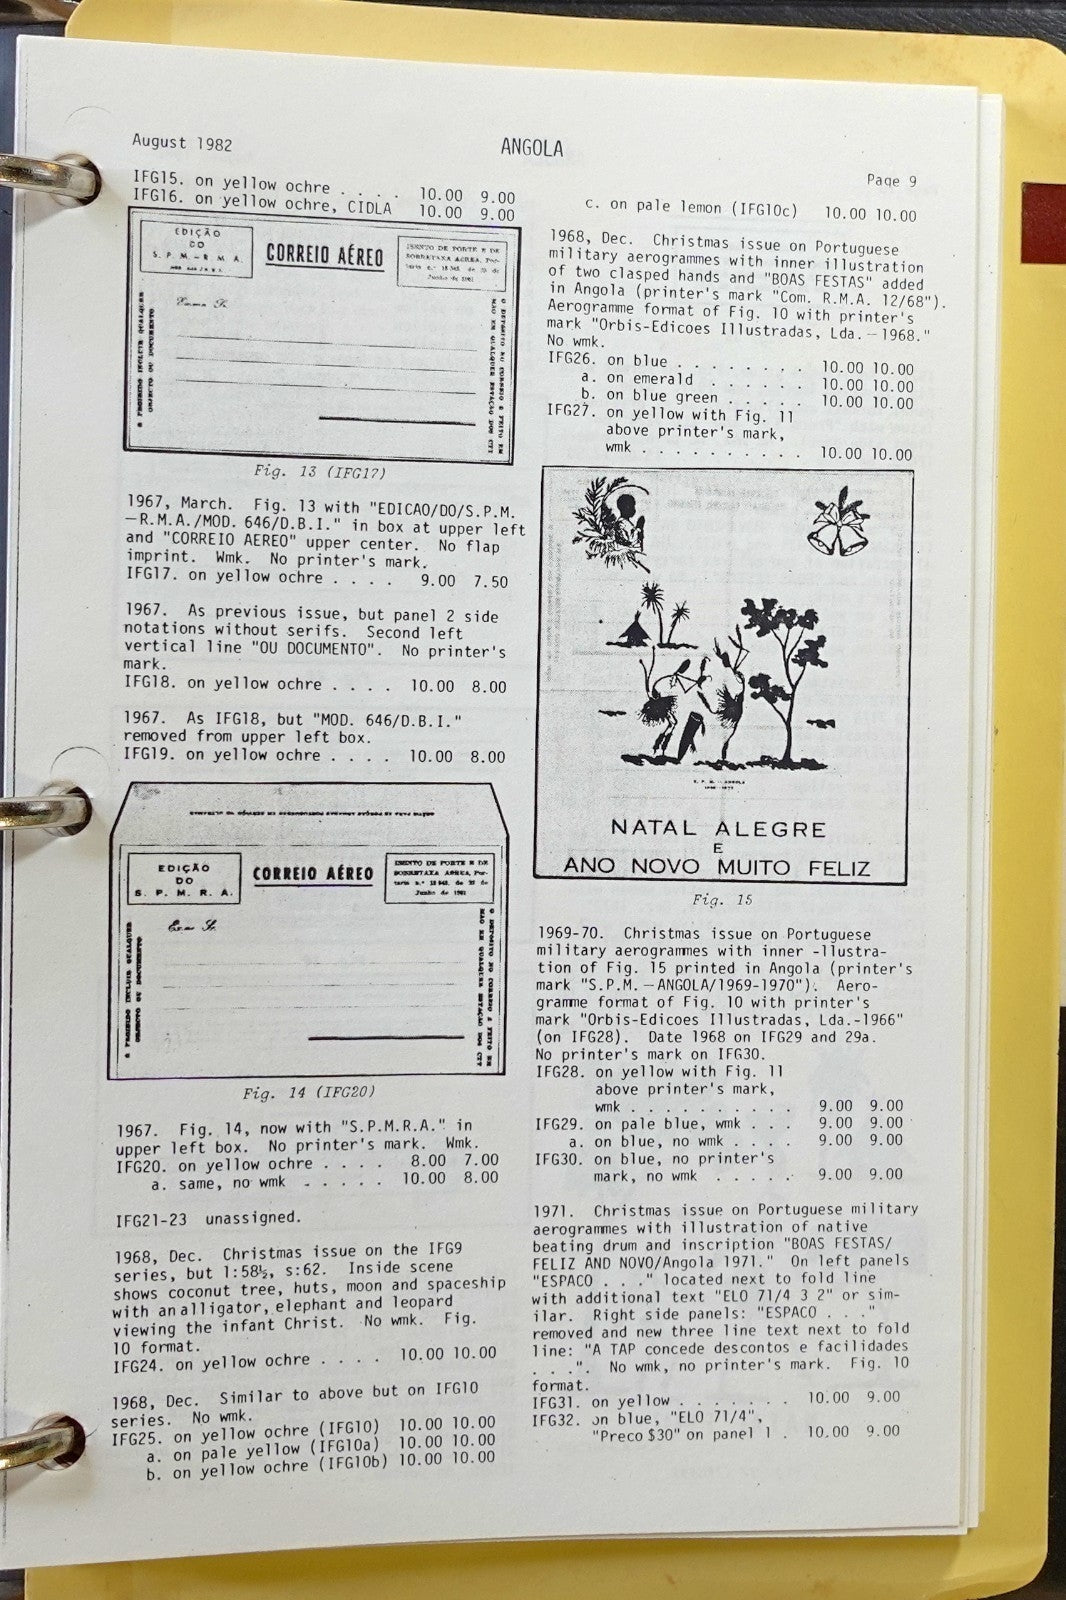 August 1982
ANGOLA
Page 9
IFG15. on yellow ochre . . . . 10.00 9.00
IFG16. on yellow ochre, CIDLA 10.00 9.00
EDIÇÃO
DO
S. P. M. – R. M. A.
CORREIO AÉREO
ISENTO DE PORTE E DE
SOBRETAXA AEREA, Por-
Junho de 1961
É PROIBIDO INCLUIR QUALQUER
OBJECTO OU DOCUMENTO
O DEPOSITO NO CORREIO É FEITO EM
NÃO EM QUALQUER ESTAÇÃO DOS CTT
Fig. 13 (IFG17)
1967, March. Fig. 13 with "EDICAO/DO/S.P.M.
–R.M.A./MOD. 646/D.B.I." in box at upper left
and "CORREIO AEREO" upper center. No flap
imprint. Wmk. No printer's mark.
IFG17. on yellow ochre . . . . 9.00 7.50
1967. As previous issue, but panel 2 side
notations without serifs. Second left
vertical line "OU DOCUMENTO". No printer's
mark.
IFG18. on yellow ochre . . . . 10.00 8.00
1967. As IFG18, but "MOD. 646/D.B.I."
removed from upper left box.
IFG19. on yellow ochre . . . . 10.00 8.00
EDIÇÃO
DO
S. P. M. R. A.
CORREIO AÉREO
ISENTO DE PORTE E DE
SOBRETAXA AEREA, Por-
Junho de 1961
Exmo. Sr.
É PROIBIDO INCLUIR QUALQUER
OBJECTO OU DOCUMENTO
O DEPOSITO NO CORREIO É FEITO EM
NÃO EM QUALQUER ESTAÇÃO DOS CTT
Fig. 14 (IFG20)
1967. Fig. 14, now with "S.P.M.R.A." in
upper left box. No printer's mark. Wmk.
IFG20. on yellow ochre . . . . 8.00 7.00
a. same, no wmk . . . . . 10.00 8.00
IFG21-23 unassigned.
1968, Dec. Christmas issue on the IFG9
series, but 1:58½, s:62. Inside scene
shows coconut tree, huts, moon and spaceship
with an alligator, elephant and leopard
viewing the infant Christ. No wmk. Fig.
10 format.
IFG24. on yellow ochre . . . . 10.00 10.00
1968, Dec. Similar to above but on IFG10
series. No wmk.
IFG25. on yellow ochre (IFG10) 10.00 10.00
a. on pale yellow (IFG10a) 10.00 10.00
b. on yellow ochre (IFG10b) 10.00 10.00
c. on pale lemon (IFG10c) 10.00 10.00
1968, Dec. Christmas issue on Portuguese
military aerogrammes with inner illustration
of two clasped hands and "BOAS FESTAS" added
in Angola (printer's mark "Com. R.M.A. 12/68").
Aerogramme format of Fig. 10 with printer's
mark "Orbis-Edicoes Illustradas, Lda. – 1968."
No wmk.
IFG26. on blue . . . . . . . . 10.00 10.00
a. on emerald . . . . . . 10.00 10.00
b. on blue green . . . . . 10.00 10.00
IFG27. on yellow with Fig. 11
above printer's mark,
wmk . . . . . . . . . . 10.00 10.00
S. P. M. – ANGOLA
NATAL ALEGRE
E
ANO NOVO MUITO FELIZ
Fig. 15
1969-70. Christmas issue on Portuguese
military aerogrammes with inner -llustra-
tion of Fig. 15 printed in Angola (printer's
mark "S.P.M. – ANGOLA/1969-1970"). Aero-
gramme format of Fig. 10 with printer's
mark "Orbis-Edicoes Illustradas, Lda.-1966"
(on IFG28). Date 1968 on IFG29 and 29a.
No printer's mark on IFG30.
IFG28. on yellow with Fig. 11
above printer's mark,
wmk . . . . . . . . . . 9.00 9.00
IFG29. on pale blue, wmk . . . 9.00 9.00
a. on blue, no wmk . . . . 9.00 9.00
IFG30. on blue, no printer's
mark, no wmk . . . . . 9.00 9.00
1971. Christmas issue on Portuguese military
aerogrammes with illustration of native
beating drum and inscription "BOAS FESTAS/
FELIZ AND NOVO/Angola 1971." On left panels
"ESPACO . . ." located next to fold line
with additional text "ELO 71/4 3 2" or sim-
ilar. Right side panels: "ESPACO . . ."
removed and new three line text next to fold
line: "A TAP concede descontos e facilidades
. . .". No wmk, no printer's mark. Fig. 10
format.
IFG31. on yellow . . . . . . . 10.00 9.00
IFG32. on blue, "ELO 71/4",
"Preco $30" on panel 1 . 10.00 9.00